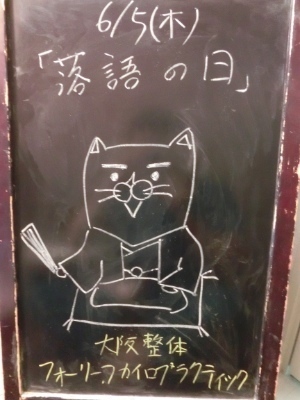 6/5(木)
「落語の日」
大阪整体
フォーリーフカイロプラクティック